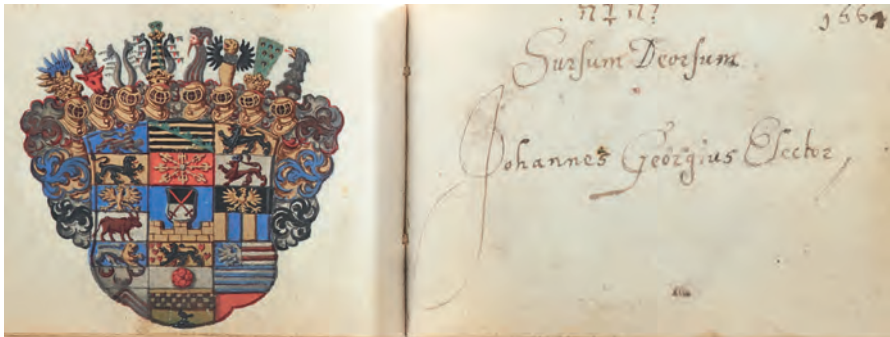 1664
Sursum Deorsum
Johannes Georgius Elector